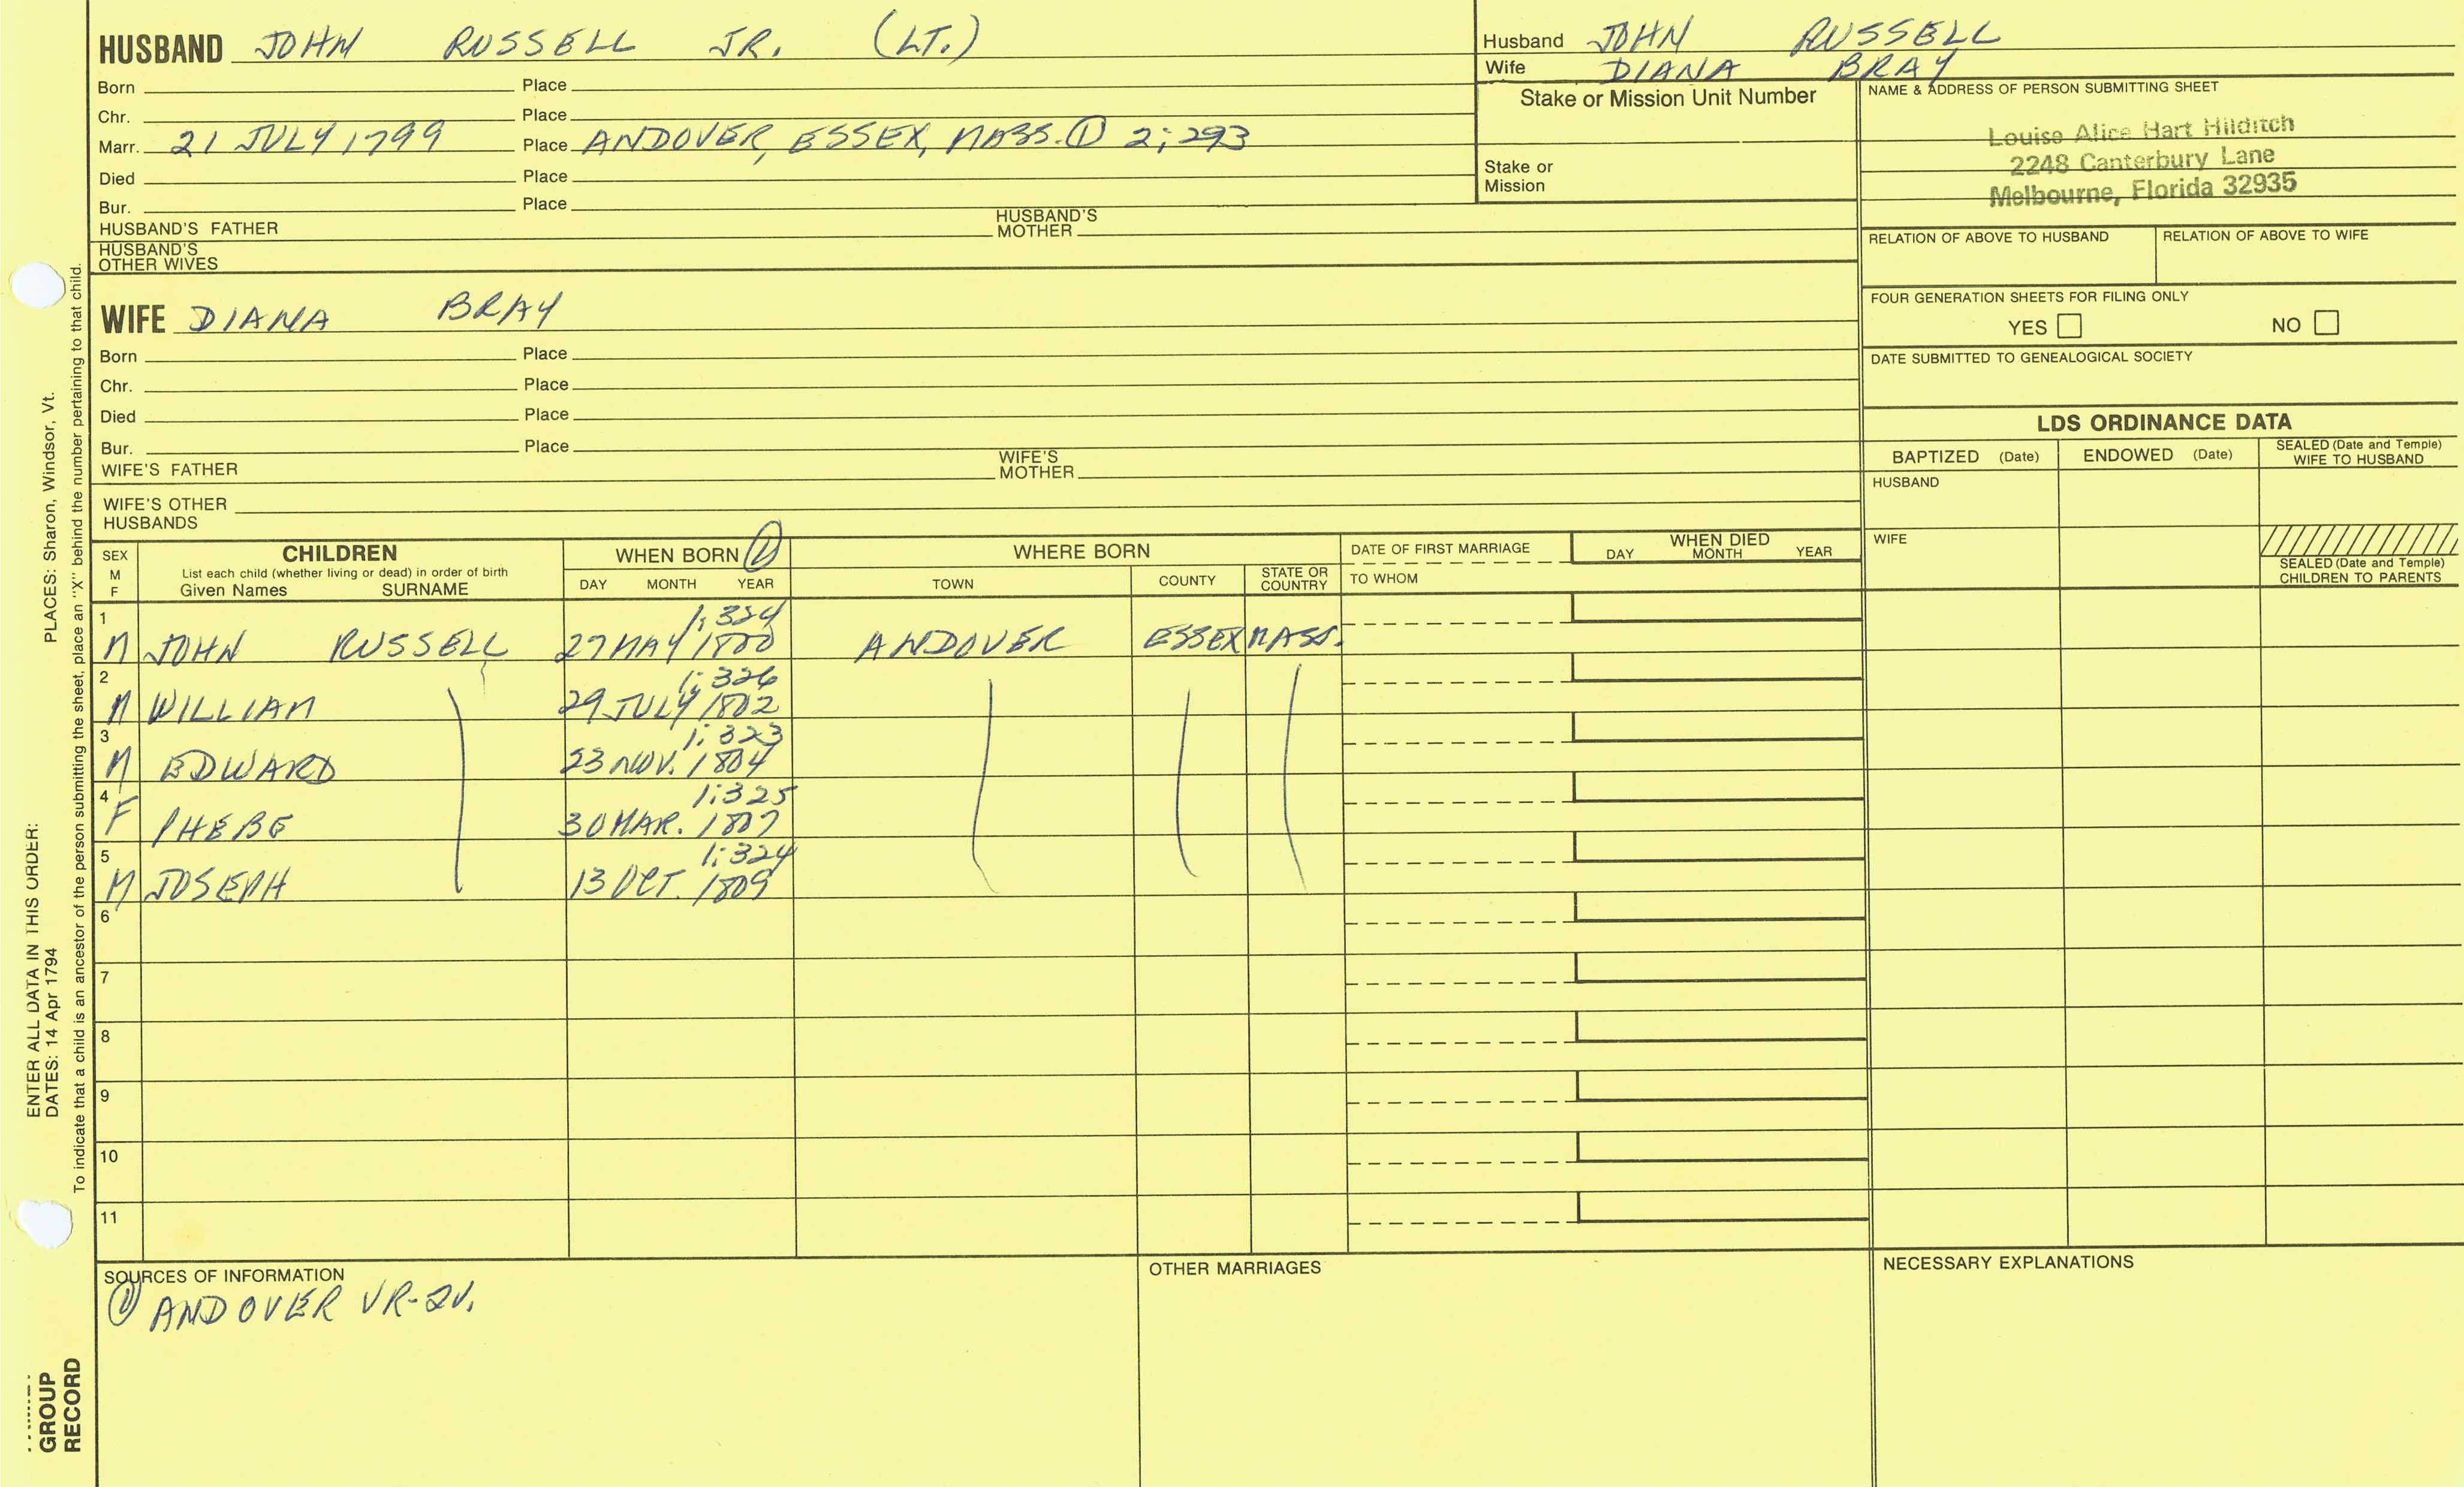 HUSBAND JOHN RUSSELL JR. (LT.)
Born Place
Chr. Place
Marr. 21 JULY 1799 Place ANDOVER, ESSEX, MASS. ① 2; 293
Died Place
Bur. Place
HUSBAND'S FATHER HUSBAND'S MOTHER
HUSBAND'S OTHER WIVES
Husband JOHN RUSSELL
Wife DIANA BRAY
Stake or Mission Unit Number
Stake or Mission
NAME & ADDRESS OF PERSON SUBMITTING SHEET
Louise Alice Hart Hilditch
2248 Canterbury Lane
Melbourne, Florida 32935
RELATION OF ABOVE TO HUSBAND RELATION OF ABOVE TO WIFE
FOUR GENERATION SHEETS FOR FILING ONLY
YES NO
DATE SUBMITTED TO GENEALOGICAL SOCIETY
WIFE DIANA BRAY
Born Place
Chr. Place
Died Place
Bur. Place
WIFE'S FATHER WIFE'S MOTHER
WIFE'S OTHER HUSBANDS
LDS ORDINANCE DATA
BAPTIZED (Date) ENDOWED (Date) SEALED (Date and Temple) WIFE TO HUSBAND
HUSBAND
WIFE
SEALED (Date and Temple) CHILDREN TO PARENTS
SEX M F
CHILDREN
List each child (whether living or dead) in order of birth
Given Names SURNAME
WHEN BORN ①
DAY MONTH YEAR
WHERE BORN
TOWN COUNTY STATE OR COUNTRY
DATE OF FIRST MARRIAGE
TO WHOM
WHEN DIED
DAY MONTH YEAR
1 1; 324
M JOHN RUSSELL 27 MAY 1800 ANDOVER ESSEX MASS.
2 1; 326
M WILLIAM 29 JULY 1802
3 1; 323
M EDWARD 23 NOV. 1804
4 1; 325
F PHEBE 30 MAR. 1807
5 1; 324
M JOSEPH 13 OCT. 1809
6
7
8
9
10
11
SOURCES OF INFORMATION
① ANDOVER VR-2V.
OTHER MARRIAGES
NECESSARY EXPLANATIONS
ENTER ALL DATA IN THIS ORDER:
DATES: 14 Apr 1794 PLACES: Sharon, Windsor, Vt.
To indicate that a child is an ancestor of the person submitting the sheet, place an "X" behind the number pertaining to that child.
GROUP
RECORD